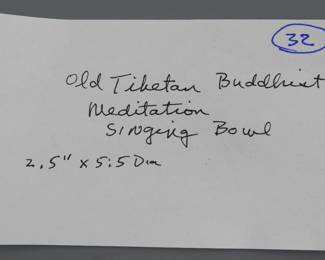 32
Old Tibetan Buddhist
Meditation
Singing Bowl
2.5" x 5.5 Dia